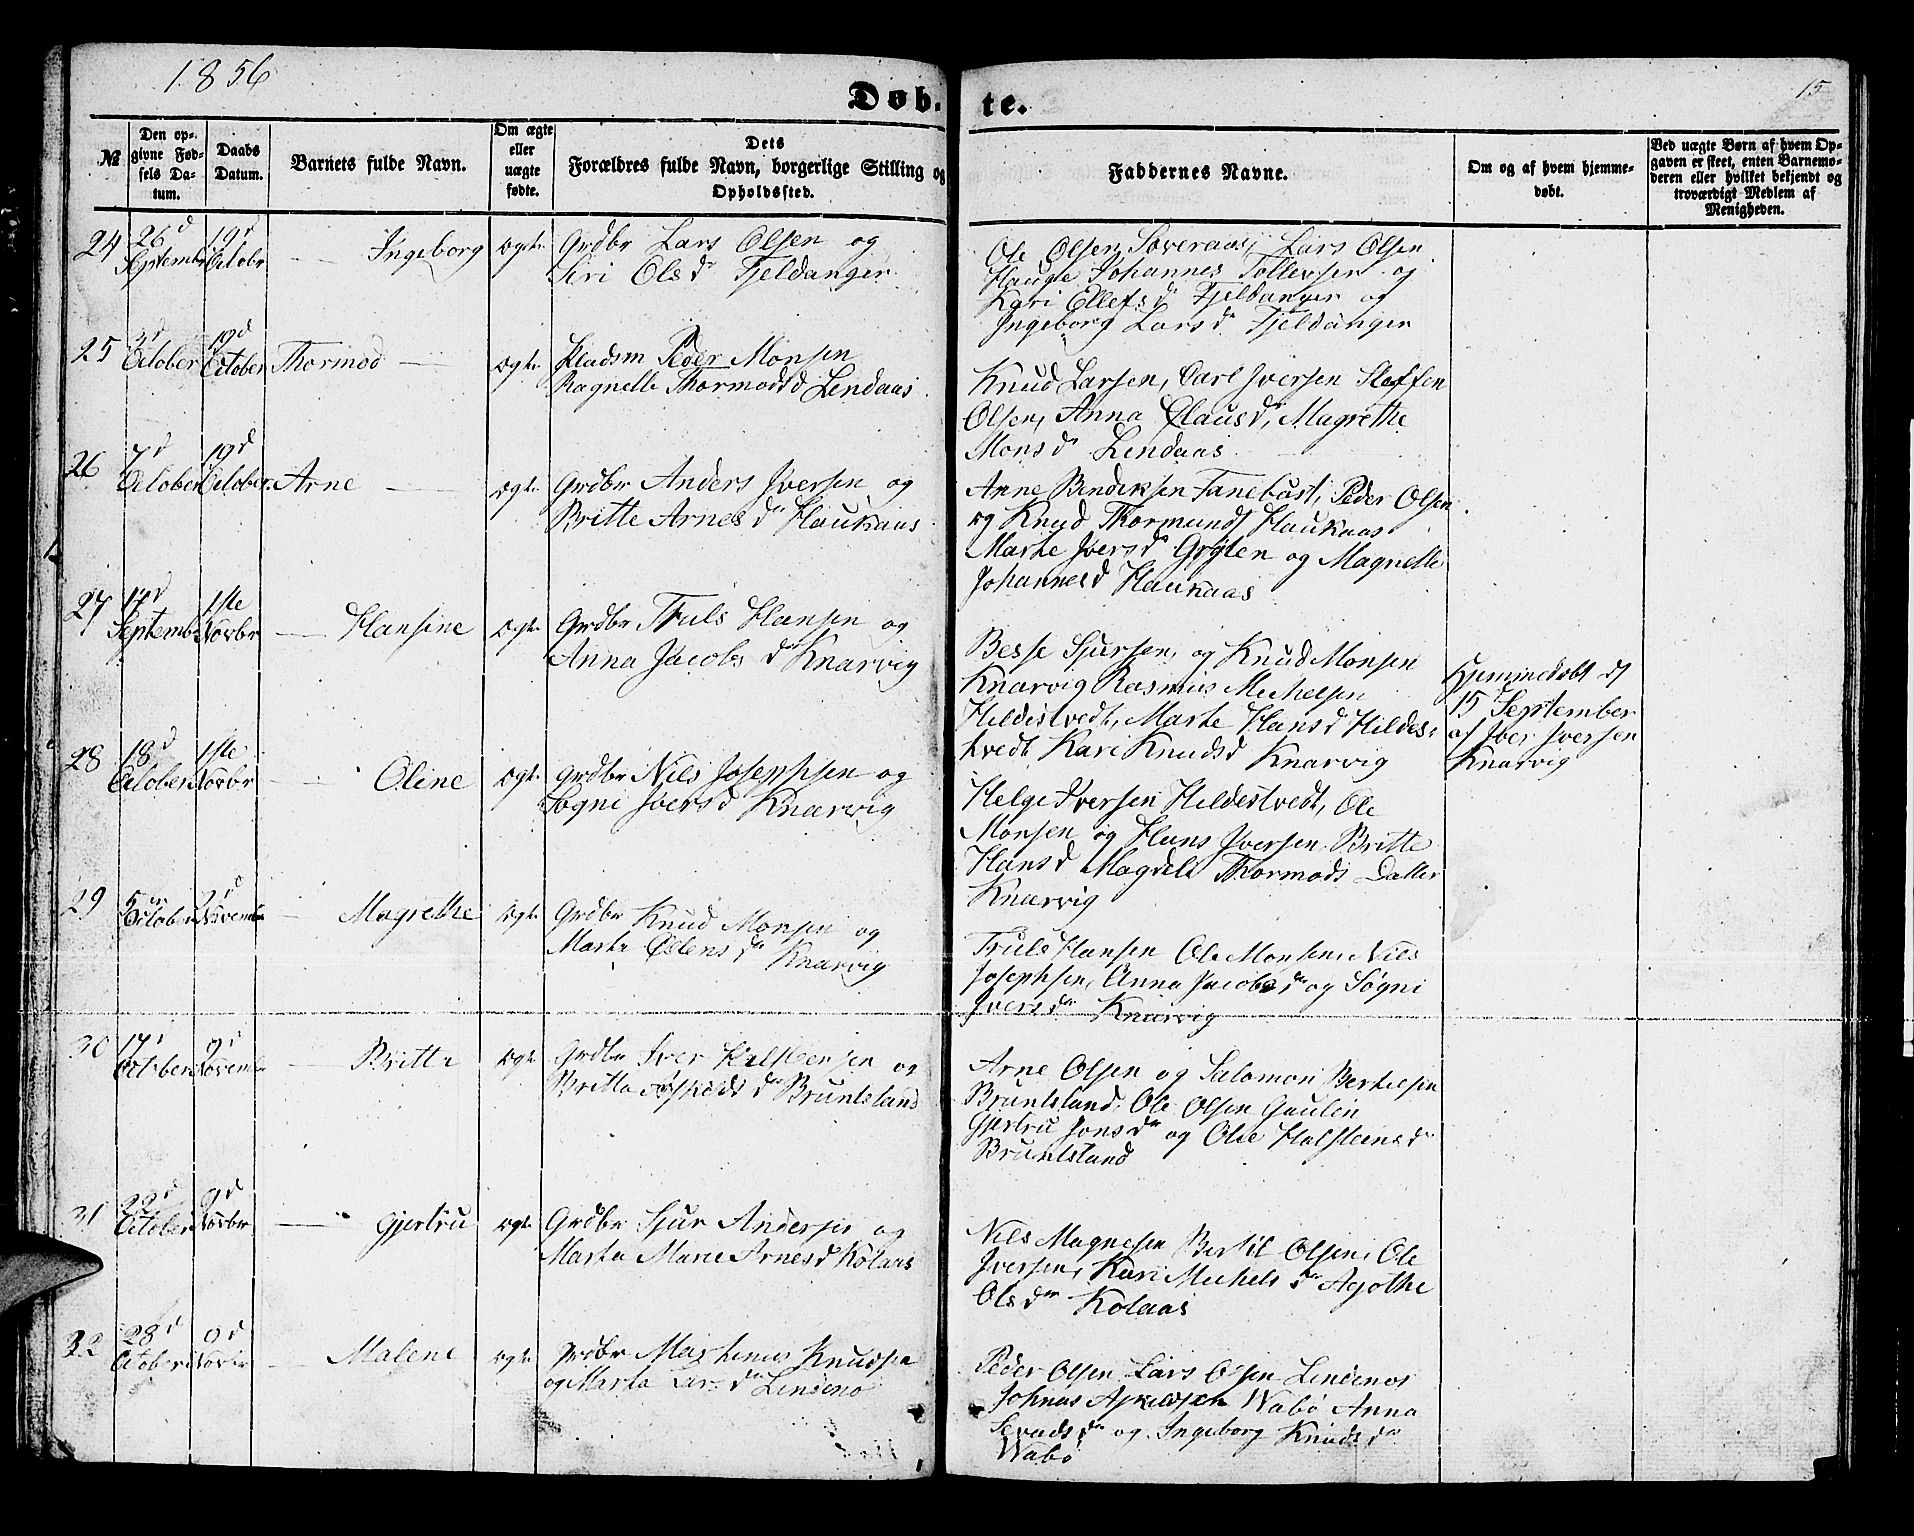 1856
15
Døb-
te.
No
Den op-
givne Fød-
sels Da-
tum.
Daabs
Datum.
Barnets fulde Navn.
Om ægte
eller
uægte
fødte.
Dets
Forældres fulde Navn, borgerlige Stilling og
Opholdssted.
Faddernes Navne.
Om og af hvem hjemme-
døbt.
Ved uægte Børn af hvem Op-
gaven er skeet, enten Barnemo-
deren eller hvilket bekjendt og
troværdigt Medlem af
Menigheden.
24
26d
Septembr
19d
Octobr
Ingeborg
ægte
Grdbr Lars Olsen og
Siri Olsdr Fjeldanger
Ole Olsen Soveraas, Lars Olsen
Hauge Johannes Tollevsen og
Kari Ellefsdr Fjeldanger og
Ingeborg Larsdr Fjeldanger
25
3d
October
19d
October
Thormod
ægte
Pladsm Peder Monsen
Ragnelle Thormodsd Lendaas
Knud Larsen, Carl Iversen Steffen
Olsen, Anna Clausdr, Magrethe
Monsdr Lendaas
26
7d
October
19d
October
Arne
ægte
Grdbr Anders Iversen og
Britte Arnesdr Haukaas
Arne Bendiksen Tanebust, Peder Olsen
og Knud Thormunds Haukaas
Marte Iversdr Grylen og Magnelle
Johannesd Haukaas
27
14d
Septembr
1ste
Novbr
Hansine
ægte
Grdbr Truls Hansen og
Anna Jacobsdr Knarvig
Besse Sjursen, og Knud Monsen
Knarvig Rasmus Michelsen
Hildestvedt, Marte Hansd Hildes-
tvedt Kari Knudsd Knarvig
Hjemmedøbt d
15 September
af Iver Iversen
Knarvig
28
18d
October
1ste
Novbr
Oline
ægte
Grdbr Nils Josephsen og
Søgni Iversd Knarvig
Helge Iversen Hildestvedt, Ole
Monsen og Hans Iversen Britte
Hansd Magdeli Thormods Datter
Knarvig
29
5
October
2d
Novembr
Magrethe
ægte
Grdbr Knud Monsen og
Marte Ølensdr Knarvig
Truls Hansen Ole Monsen, Nils
Josephsen, Anna Jacobsdr og Søgni
Iversdr Knarvig
30
17d
October
9d
Novembr
Britte
ægte
Grdbr Iver Halsteensen og
Britta Aspeldsdr Bruntsland
Arne Olsen og Salomon Bertelsen
Bruntsland, Ole Olsen Gaulen
Gjertru Jonsdr og Olie Halsteensdr
Bruntsland
31
22d
October
9d
Novbr
Gjertru
ægte
Grdbr Sjur Andersen og
Marta Marie Arnesd Kolaas
Nils Magnesen Bertil Olsen, Ole
Iversen, Kari Michelsdr Agothe
Olsdr Kolaas
32
28d
October
9d
Malene
ægte
Grdbr Marthinus Knudsen
og Marta Larsdr Lindenø
Peder Olsen Lars Olsen Lindenøs
Johnas Askeldsen Wabø Anna
Sevadsdr og Ingeborg Knudsdr
Wabø